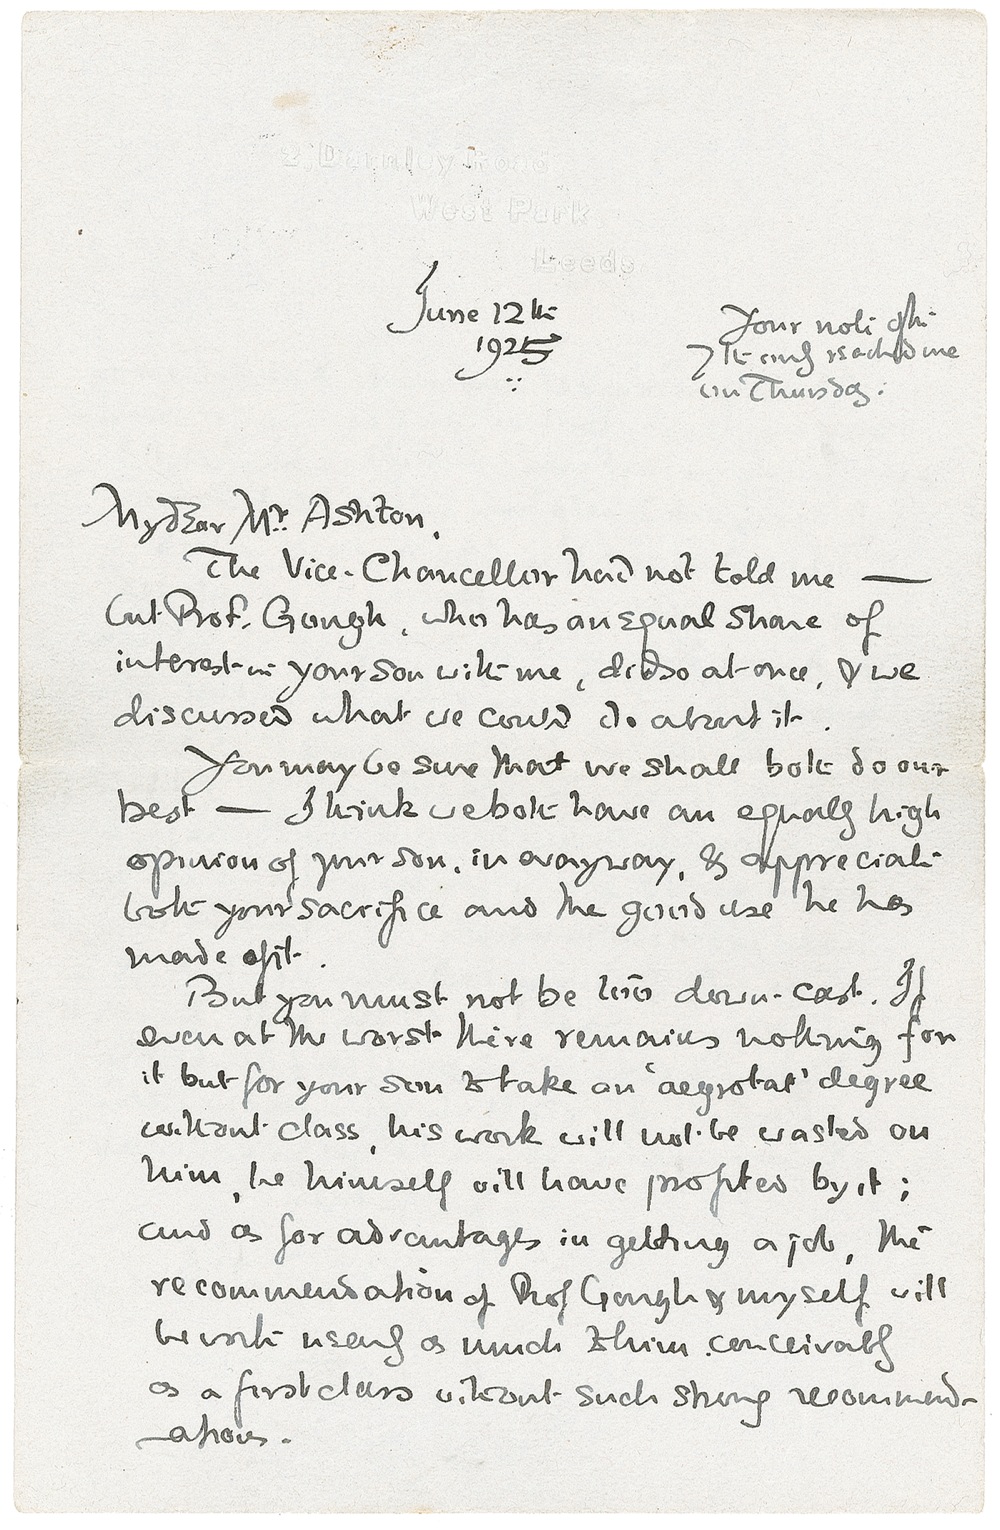 2, Darnley Road
West Park
Leeds
June 12th
1925
Your note of the
7th only reached me
on Thursday.
My dear Mr. Ashton,
The Vice-Chancellor had not told me —
but Prof. Gough, who has an equal share of
interest in your son with me, did so at once, & we
discussed what we could do about it.
You may be sure that we shall both do our
best — I think we both have an equally high
opinion of your son, in every way, & appreciate
both your sacrifice and the good use he has
made of it.
But you must not be too down-cast. If
even at the worst there remains nothing for
it but for your son to take an 'aegrotat' degree
without class, his work will not be wasted on
him, he himself will have profited by it;
and as for advantages in getting a job, the
recommendation of Prof Gough & myself will
be worth nearly as much to him conceivably
as a first class without such strong recommend-
-ations.